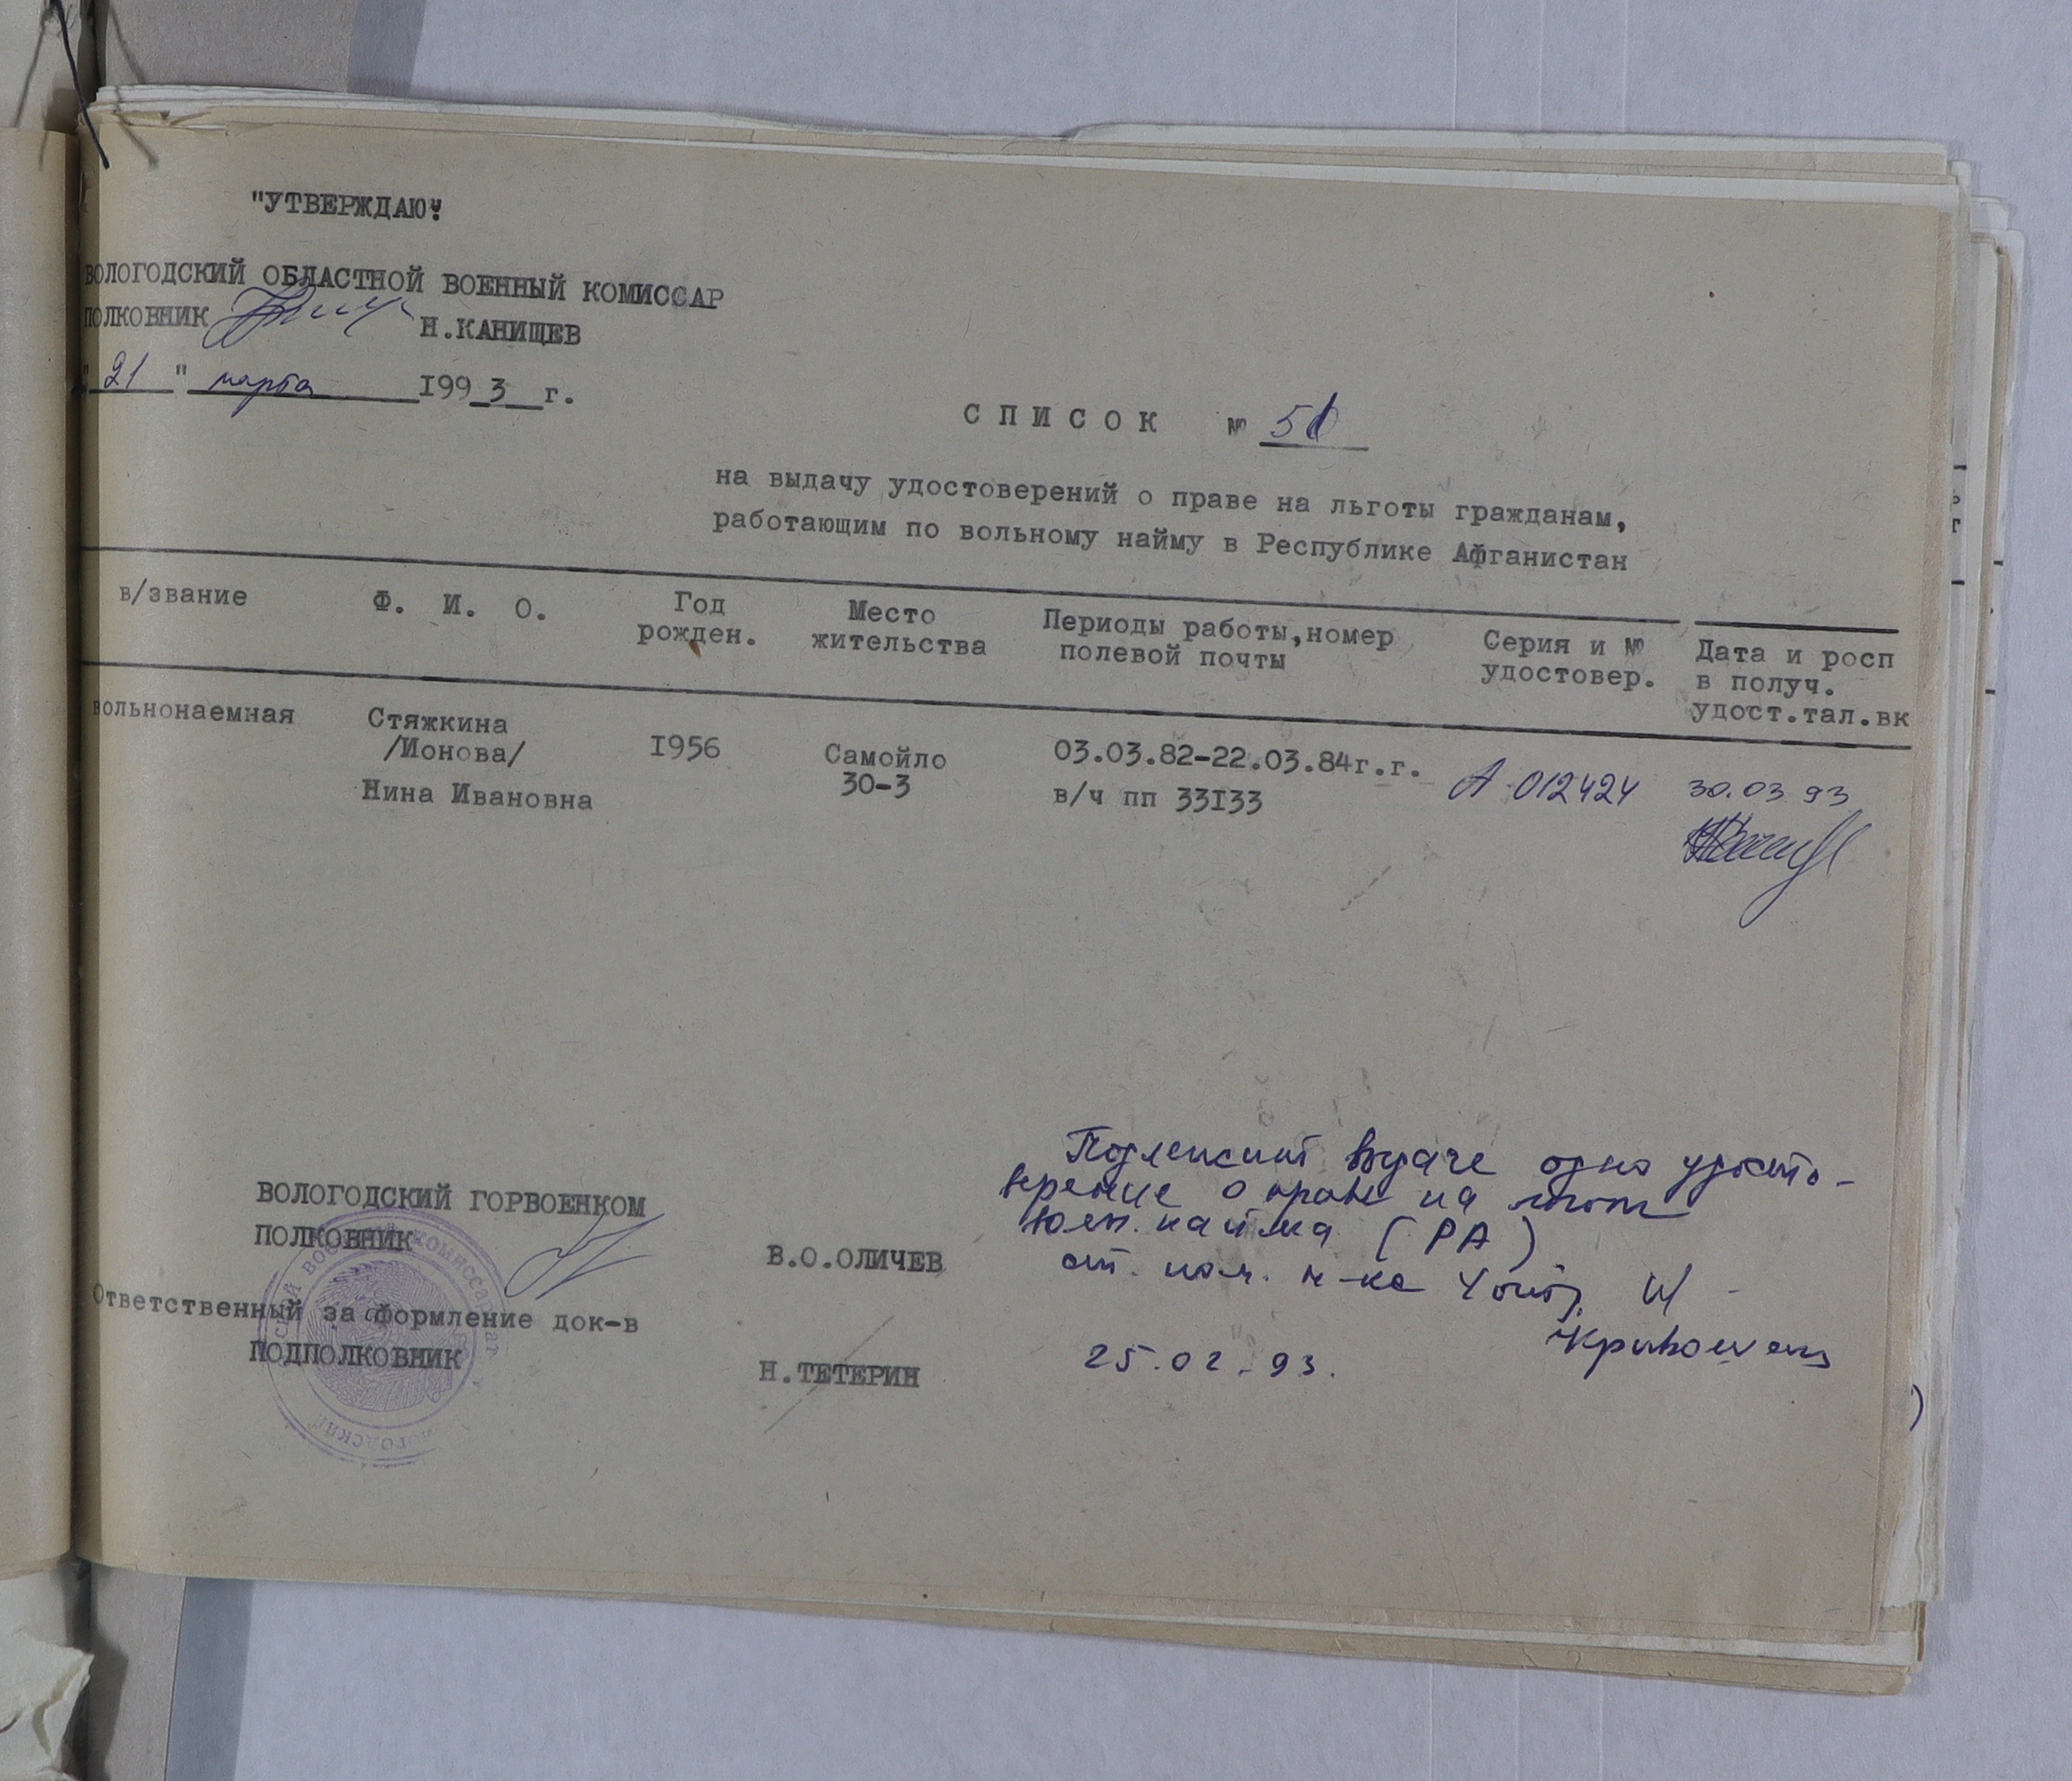 "УТВЕРЖДАЮ"
ВОЛОГОДСКИЙ ОБЛАСТНОЙ ВОЕННЫЙ КОМИССАР
ПОЛКОВНИК Н.КАНИЩЕВ
"21" марта I993 г.
СПИСОК №
на выдачу удостоверений о праве на льготы гражданам,
работающим по вольному найму в Республике Афганистан
в/звание Ф. И. О. Год рожден. Место жительства Периоды работы,номер полевой почты Серия и № удостовер. Дата и росп в получ. удост.тал.вк
вольнонаемная Стяжкина /Ионова/ Нина Ивановна I956 Самойло 30-3 03.03.82-22.03.84г.г. в/ч пп 33I33 А 012424 30.03 93
Подлежит выдаче одно удосто-
верение о праве на льготы
найма (РА)
ст. пом. н-ка
25.02.93.
ВОЛОГОДСКИЙ ГОРВОЕНКОМ
ПОЛКОВНИК В.О.ОЛИЧЕВ
Ответственный за оформление док-в
ПОДПОЛКОВНИК Н.ТЕТЕРИН